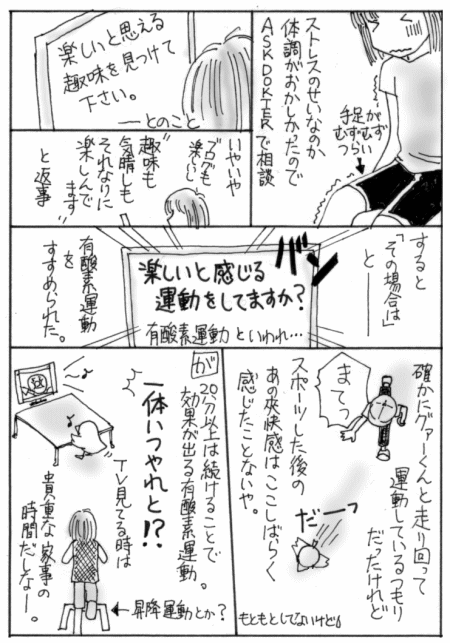 ストレスのせいなのか
体調がおかしかったので
ASKDOKTERで相談
手足がずむずむずむい
つら
楽しいと思える
趣味を見つけて
下さい。
―とのこと
いやいや
ブログも
楽しい
趣味も
気晴しも
それなりに
楽しんで
ます
と返事
すると
「その場合は」
と―
ガン
楽しいと感じる
運動をしてますか?
有酸素運動といわれ…
有酸素運動
を
すすめられた。
確かにクァーくんと走り回って
運動しているつもり
だったけれど
まてっ
だーっ
スポーツした後の
あの爽快感はここしばらく
感じたことないや。
もともとしてないけど
が
20分以上は続けることで
効果が出る有酸素運動。
一体いつやれと!?
TV見てる時は
貴重な家事の
時間だしなー。
←昇降運動とか?